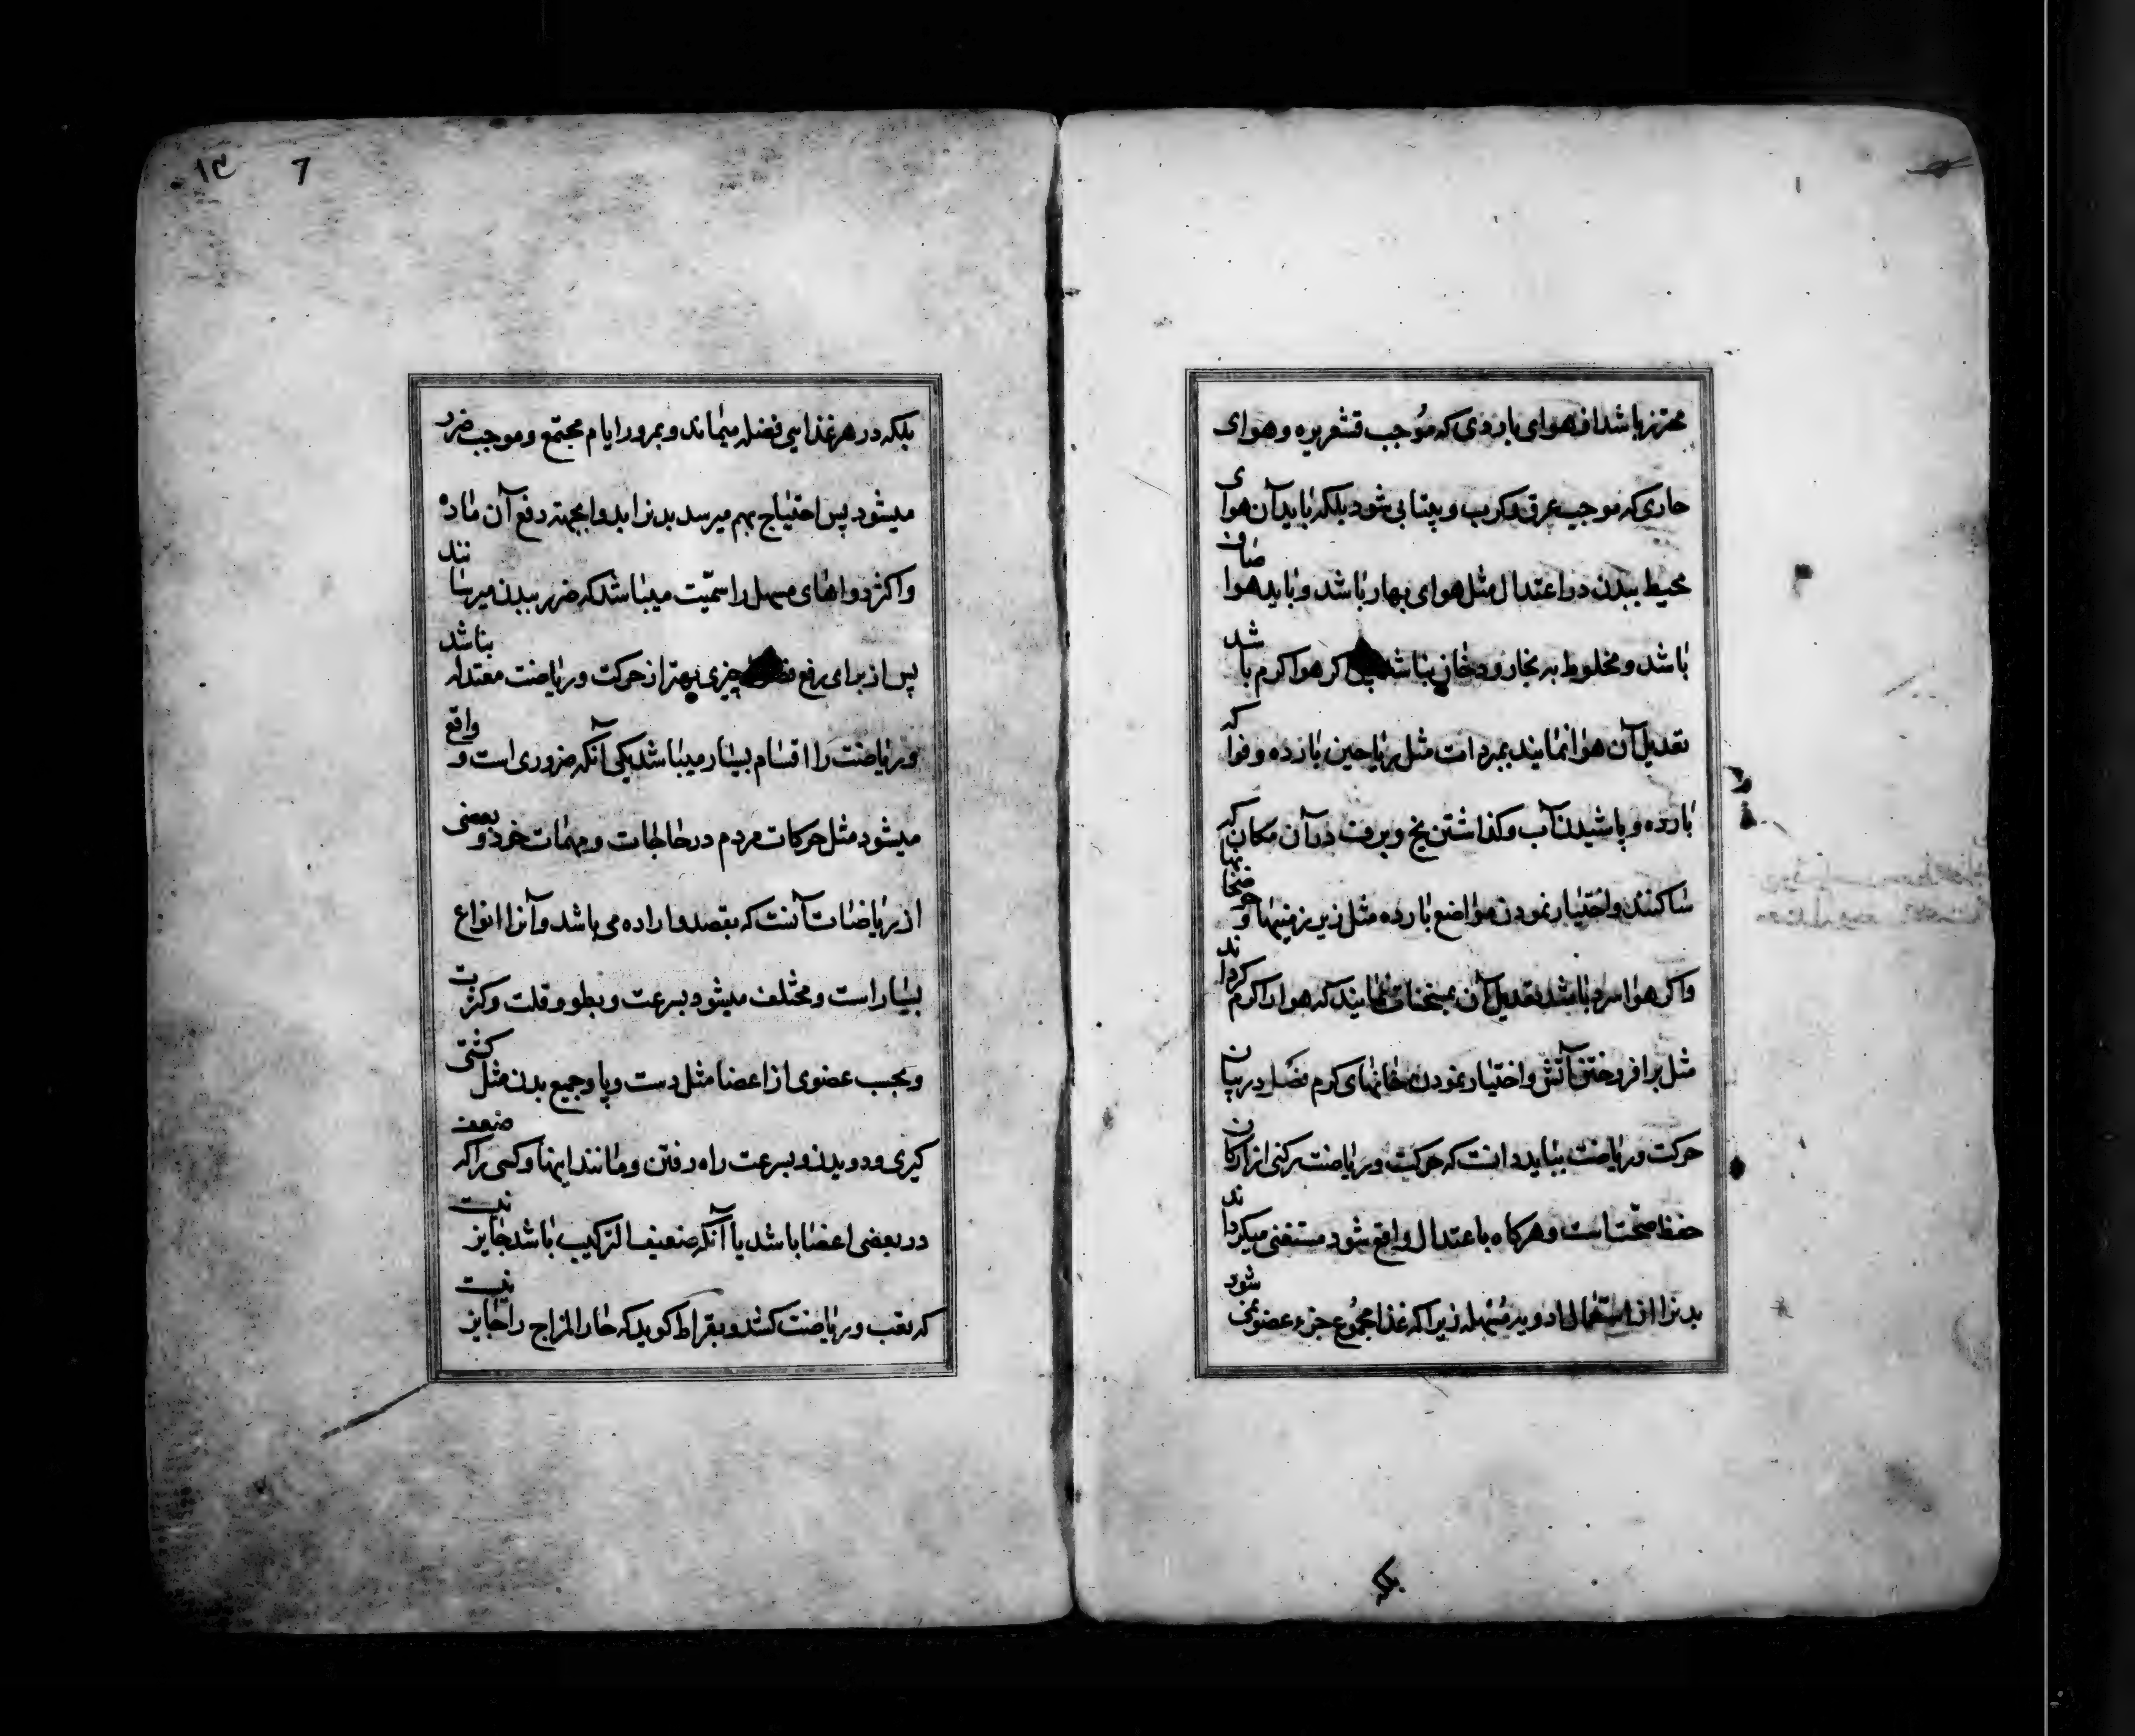 محترز باشد از هوای باردی که موجب قشعریره و هوای
حاری که موجب عرق و کرب و بیتابی شود بلکه باید آن هوای
محیط ببدن در اعتدال مثل هوای بهار باشد و باید هوا صاف
باشد و مخلوط به بخار و دخان نباشد کر هوا کرم باشد
تعدیل آن هوا نمایند بمبردات مثل ریاحین بارده و فواکه
بارده و پاشیدن آب و کذاشتن یخ و برف در آن مکان که
ساکنند و اختیار نمودن مواضع بارده مثل زیر زمینها و حوضخانها
و اکر هوا سرد باشد تعدیل آن بمسخنات نمایند که هوا را کرم کرداند
مثل برافروختن آتش و اختیار نمودن خانهای کرم فصل در بیان
حرکت و ریاضت بباید دانست که حرکت و ریاضت رکنی از ارکان
حفظ صحّت است و هرکاه باعتدال واقع شود مستغنی میکرداند
بدنرا از استعمال ادویه مسهله زیرا که غذا مجموع جزء عضو نمی شود
بلکه
١٣ 7
بلکه در هر غذایی فضله میماند و بمرور ایام مجتمع و موجب ضرر
میشود پس احتیاج بهم میرسد بدنرا بدوا بجهته دفع آن ماده
و اکثر دواهای مسهل را سمّیت میباشد که ضرر ببدن میرسانند
پس از برای رفع چیزی بهتر از حرکت و ریاضت معتدله نباشد
و ریاضت را اقسام بسیار میباشد یکی آنکه ضروری است و واقع
میشود مثل حرکات مردم در حاجات و مهمات خود و بعضی
از ریاضات آنست که بقصد و اراده می باشد و آنرا انواع
بسیار است و مختلف میشود بسرعت و بطو و قلت و کثرت
و بحسب عضوی از اعضا مثل دست و پا و جمیع بدن مثل کشتی
کیری و دویدن و بسرعت راه رفتن و مانند اینها و کسی را که ضعف
در بعضی اعضا باشد یا آنکه ضعیف الترکیب باشد جایز نیست
که تعب و ریاضت کشد و بقراط کوید که حار المزاج را جایز نیست